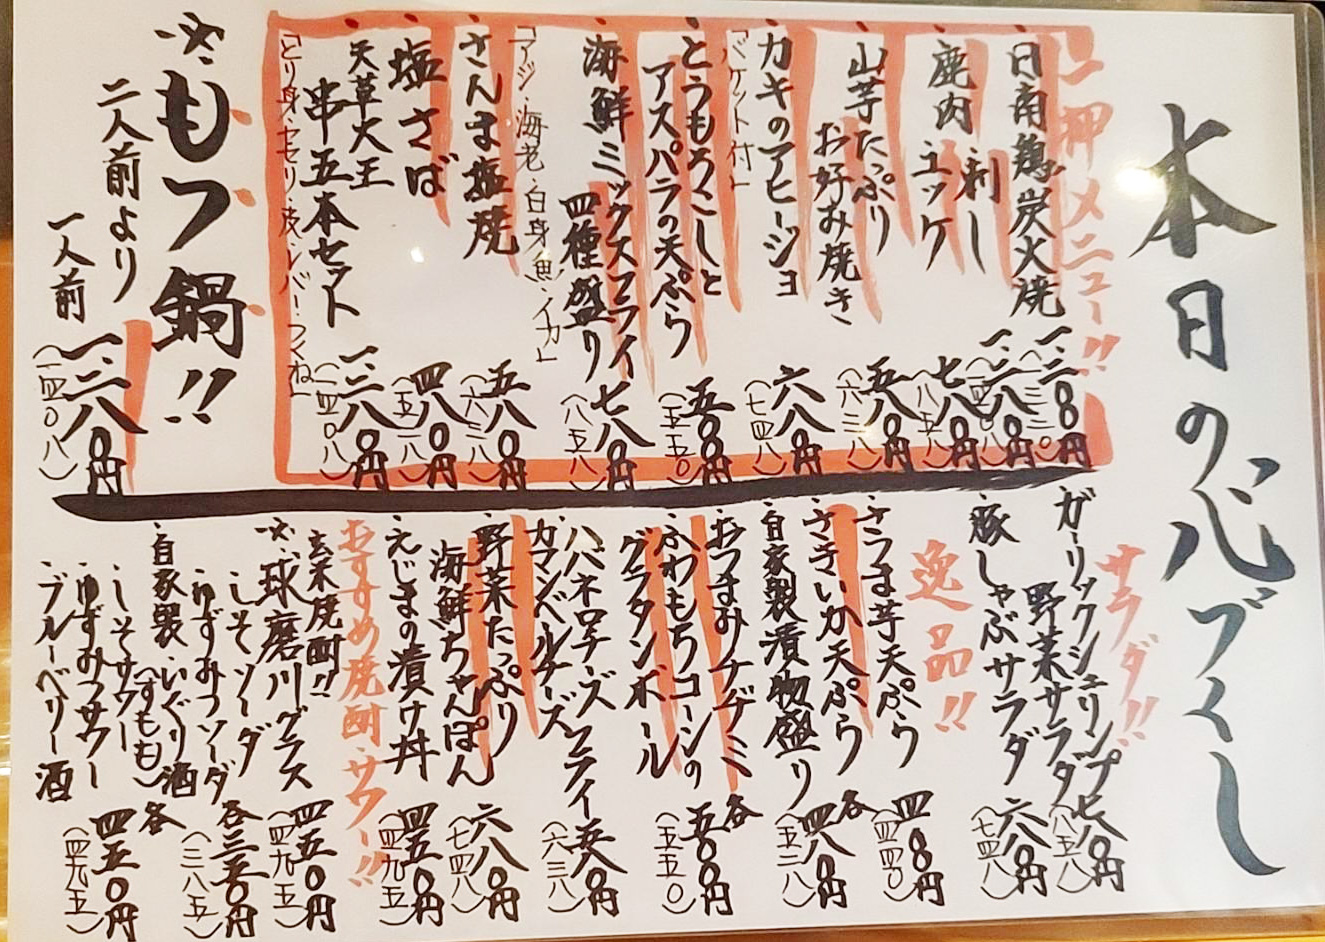 本日の心づくし
一押メニュー!!
・日南鶏炭火焼 一、二〇〇円
(一三二〇)
・鹿肉 刺し 一、二八〇円
(一四〇八)
ユッケ 七八〇円
(八五八)
・山芋たっぷり
お好み焼き 五八〇円
(六三八)
・カキのアヒージョ 六八〇円
「バケット付」 (七四八)
・とうもろこしと
アスパラの天ぷら 五〇〇円
(五五〇)
・海鮮ミックスフライ
四種盛り 七八〇円
(八五八)
「アジ・海老・白身魚・イカ」
・さんま塩焼 五八〇円
(六三八)
・塩さば 四八〇円
(五二八)
・天草大王
串五本セット 一、二八〇円
(一四〇八)
「とり身・セセリ・皮・レバー・つくね」
※もつ鍋!!
二人前より
一人前 一、二八〇円
(一四〇八)
サラダ!!
ガーリックシュリンプ
野菜サラダ 七八〇円
(八五八)
・豚しゃぶサラダ 六八〇円
(七四八)
逸品!!
・さつま芋天ぷら 四〇〇円
(四四〇)
・さきいか天ぷら
・自家製漬物盛り 各四八〇円
(五二八)
・おつまみチヂミ
・ふわもちコーンの
グラタンボール 各五〇〇円
(五五〇)
・ハバネロチーズフライ
カマンベルチーズ 五八〇円
(六三八)
・野菜たっぷり
海鮮ちゃんぽん 六八〇円
(七四八)
・えじまの漬け丼 四五〇円
(四九五)
おすすめ焼酎・サワー!!
玄米焼酎!!
※球磨川グラス 四五〇円
(四九五)
・しそソーダ
・ゆずみつソーダ 各三五〇円
(三八五)
・自家製・いぐり酒
(すもも)
・しそサワー
・ゆずみつサワー
・ブルーベリー酒 各四五〇円
(四九五)